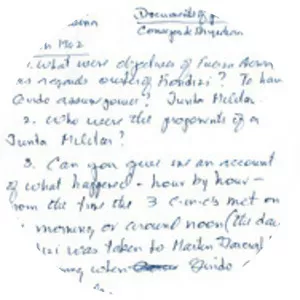 Documents of
Comega de Inyection
in 1962
1. What were objectives of Fuerza Aerea
as regards ouster of Frondizi? To have
Guido assume power? Junta Militar.
2. Who were the proponents of a
Junta Militar?
3. Can you give me an account
of what happened - hour by hour -
from the time the 3 c-in-cs met on
morning or around noon (the day
was taken to Martin Garcia)
when Guido